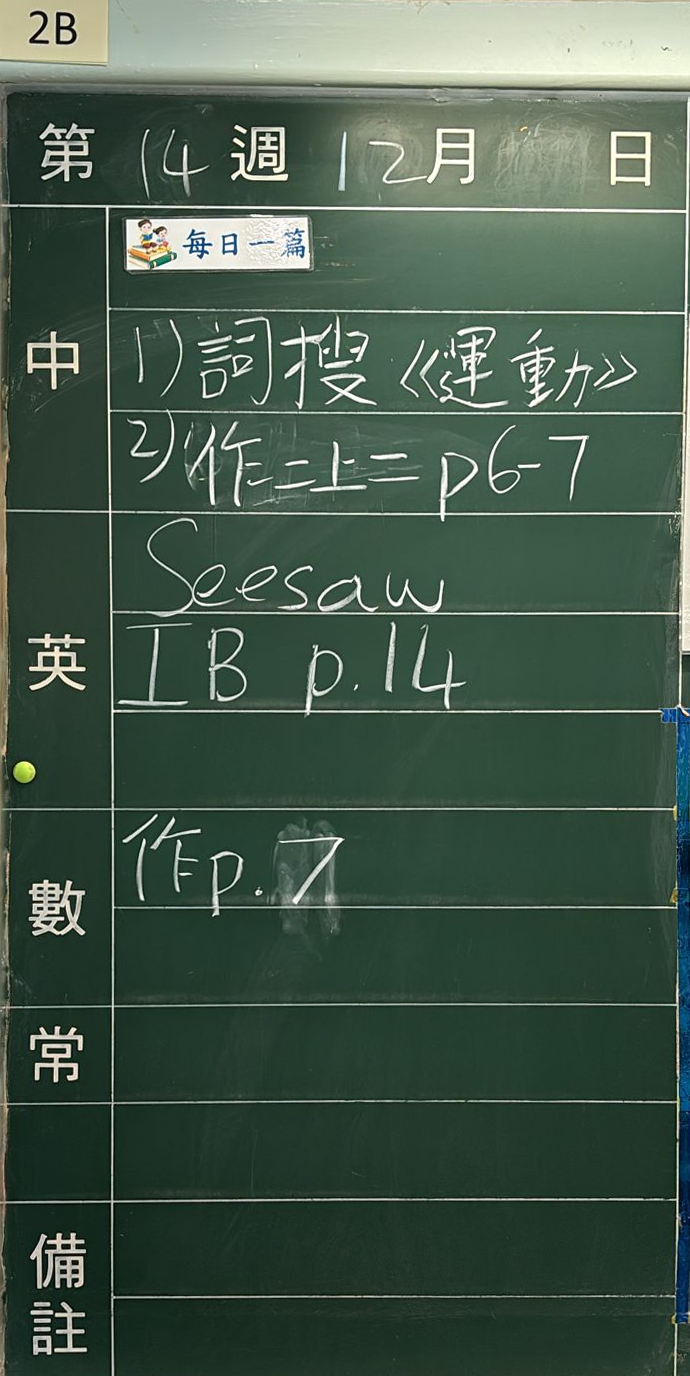 2B
第 14 週 12月 日
中
每日一篇
1) 詞搜《運動》
2) 作二上二 p6-7
英
Seesaw
IB p.14
數
作p.7
常
備註